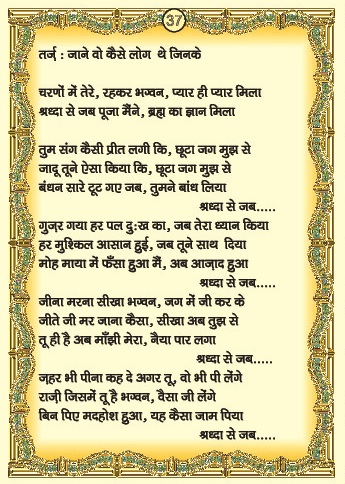 37
तर्ज़ : जाने वो कैसे लोग थे जिनके
चरणों में तेरे, रहकर भगवन, प्यार ही प्यार मिला
श्रध्दा से जब पूजा मैंने, ब्रह्म का ज्ञान मिला
तुम संग कैसी प्रीत लगी कि, छूटा जग मुझ से
जादू तूने ऐसा किया कि, छूटा जग मुझ से
बंधन सारे टूट गए जब, तुमने बांध लिया
श्रध्दा से जब.....
गुज़र गया हर पल दुःख का, जब तेरा ध्यान किया
हर मुश्किल आसान हुई, जब तूने साथ दिया
मोह माया में फँसा हुआ मैं, अब आज़ाद हुआ
श्रध्दा से जब.....
जीना मरना सीखा भगवन, जग में जी कर के
जीते जी मर जाना कैसा, सीखा अब तुझ से
तू ही है अब माँझी मेरा, नैया पार लगा
श्रध्दा से जब.....
ज़हर भी पीना कह दे अगर तू, वो भी पी लेंगे
राज़ी जिसमें तू है भगवन, वैसा जी लेंगे
बिन पिए मदहोश हुआ, यह कैसा जाम पिया
श्रध्दा से जब.....